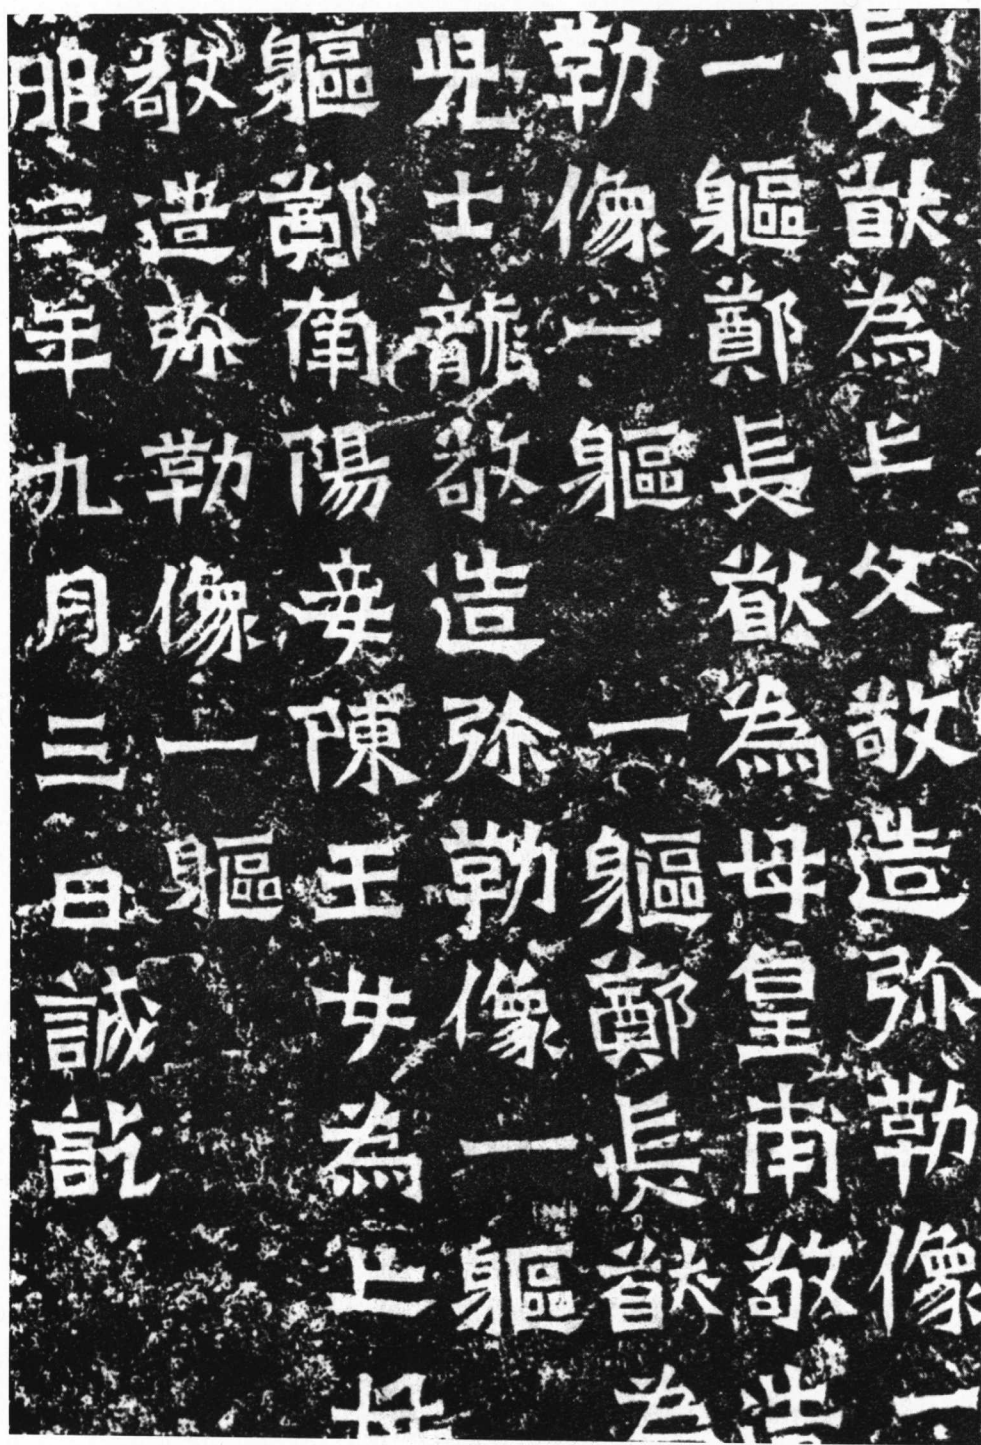 長猷為亡父敬造弥勒像一
一軀鄭長猷為母皇甫敬造
勒像一軀 一軀鄭長猷為
兒士龍敬造弥勒像一軀
軀鄭南陽妾陳玉女為亡母
敬造弥勒像一軀
明二年九月三日誡訖